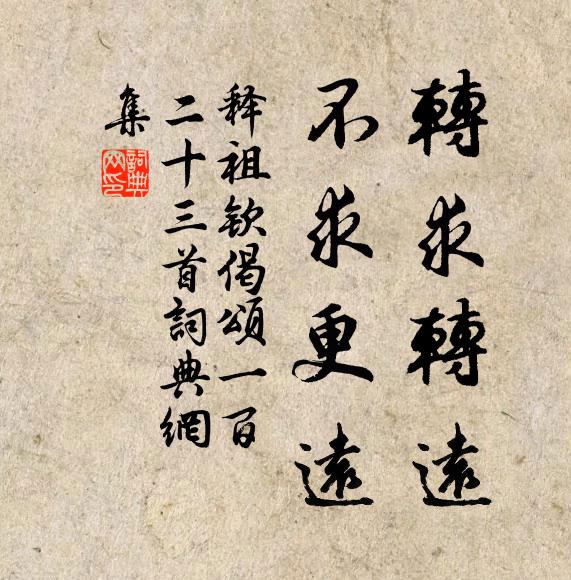 轉求轉遠
不求更遠
释祖钦偈頌一百
二十三首詞典網
集
詞典
网印